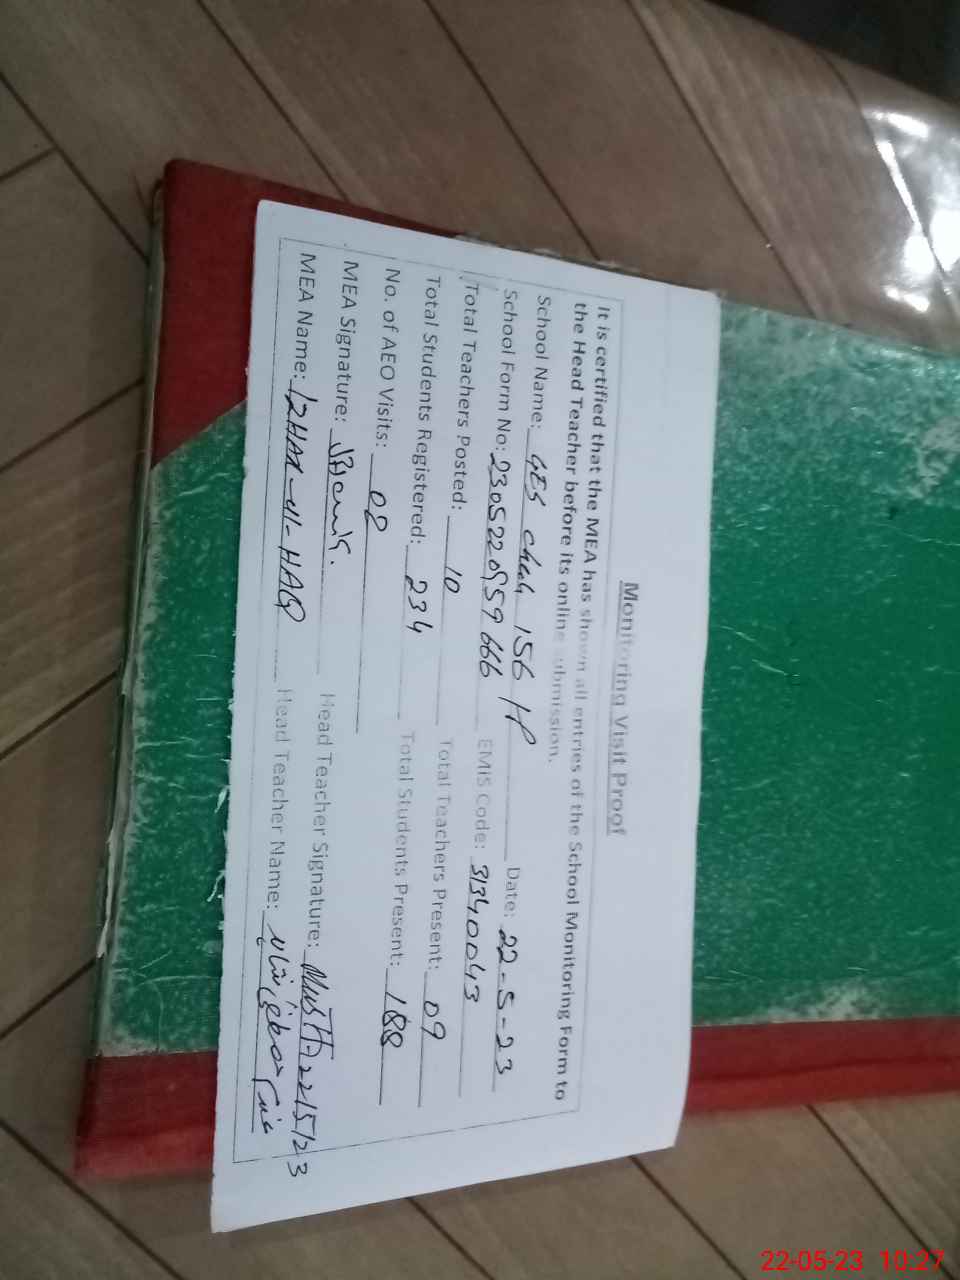 Monitoring Visit Proof
It is certified that the MEA has shown all entries of the School Monitoring Form to
the Head Teacher before its online submission.
School Name: GES chak 156 /P Date: 22-5-23
School Form No: EMIS Code: 31340043
Total Teachers Posted: 10 Total Teachers Present: 09
Total Students Registered: 234 Total Students Present: 188
No. of AEO Visits: 08
MEA Signature: Head Teacher Signature: 22/5/23
MEA Name: IZHAR-ul-HAQ Head Teacher Name:
22-05-23 10:27